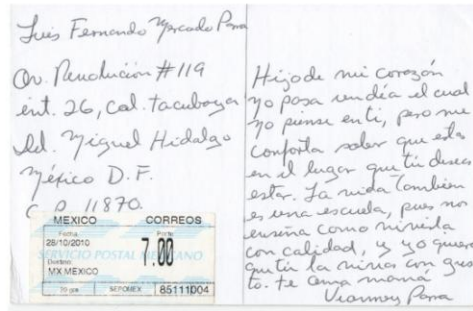 Luis Fernando Mercado Parra
Av. Revolución #119
int. 26, Col. Tacubaya
Del. Miguel Hidalgo
México D.F.
C.P. 11870.
MEXICO CORREOS
Fecha Porte
28/10/2010 7.00
SERVICIO POSTAL MEXICANO
Destino
MX MEXICO
20 grs SEPOMEX 85111004
Hijo de mi corazón
no pasa un día el cual
no piense en ti, pero me
conforta saber que esta
en el lugar que tú deseas
estar. La vida también
es una escuela, pues nos
enseña como vivirla
con calidad, y yo quiero
que tú la vivas con gus
to. te ama mamá
Vianney Parra